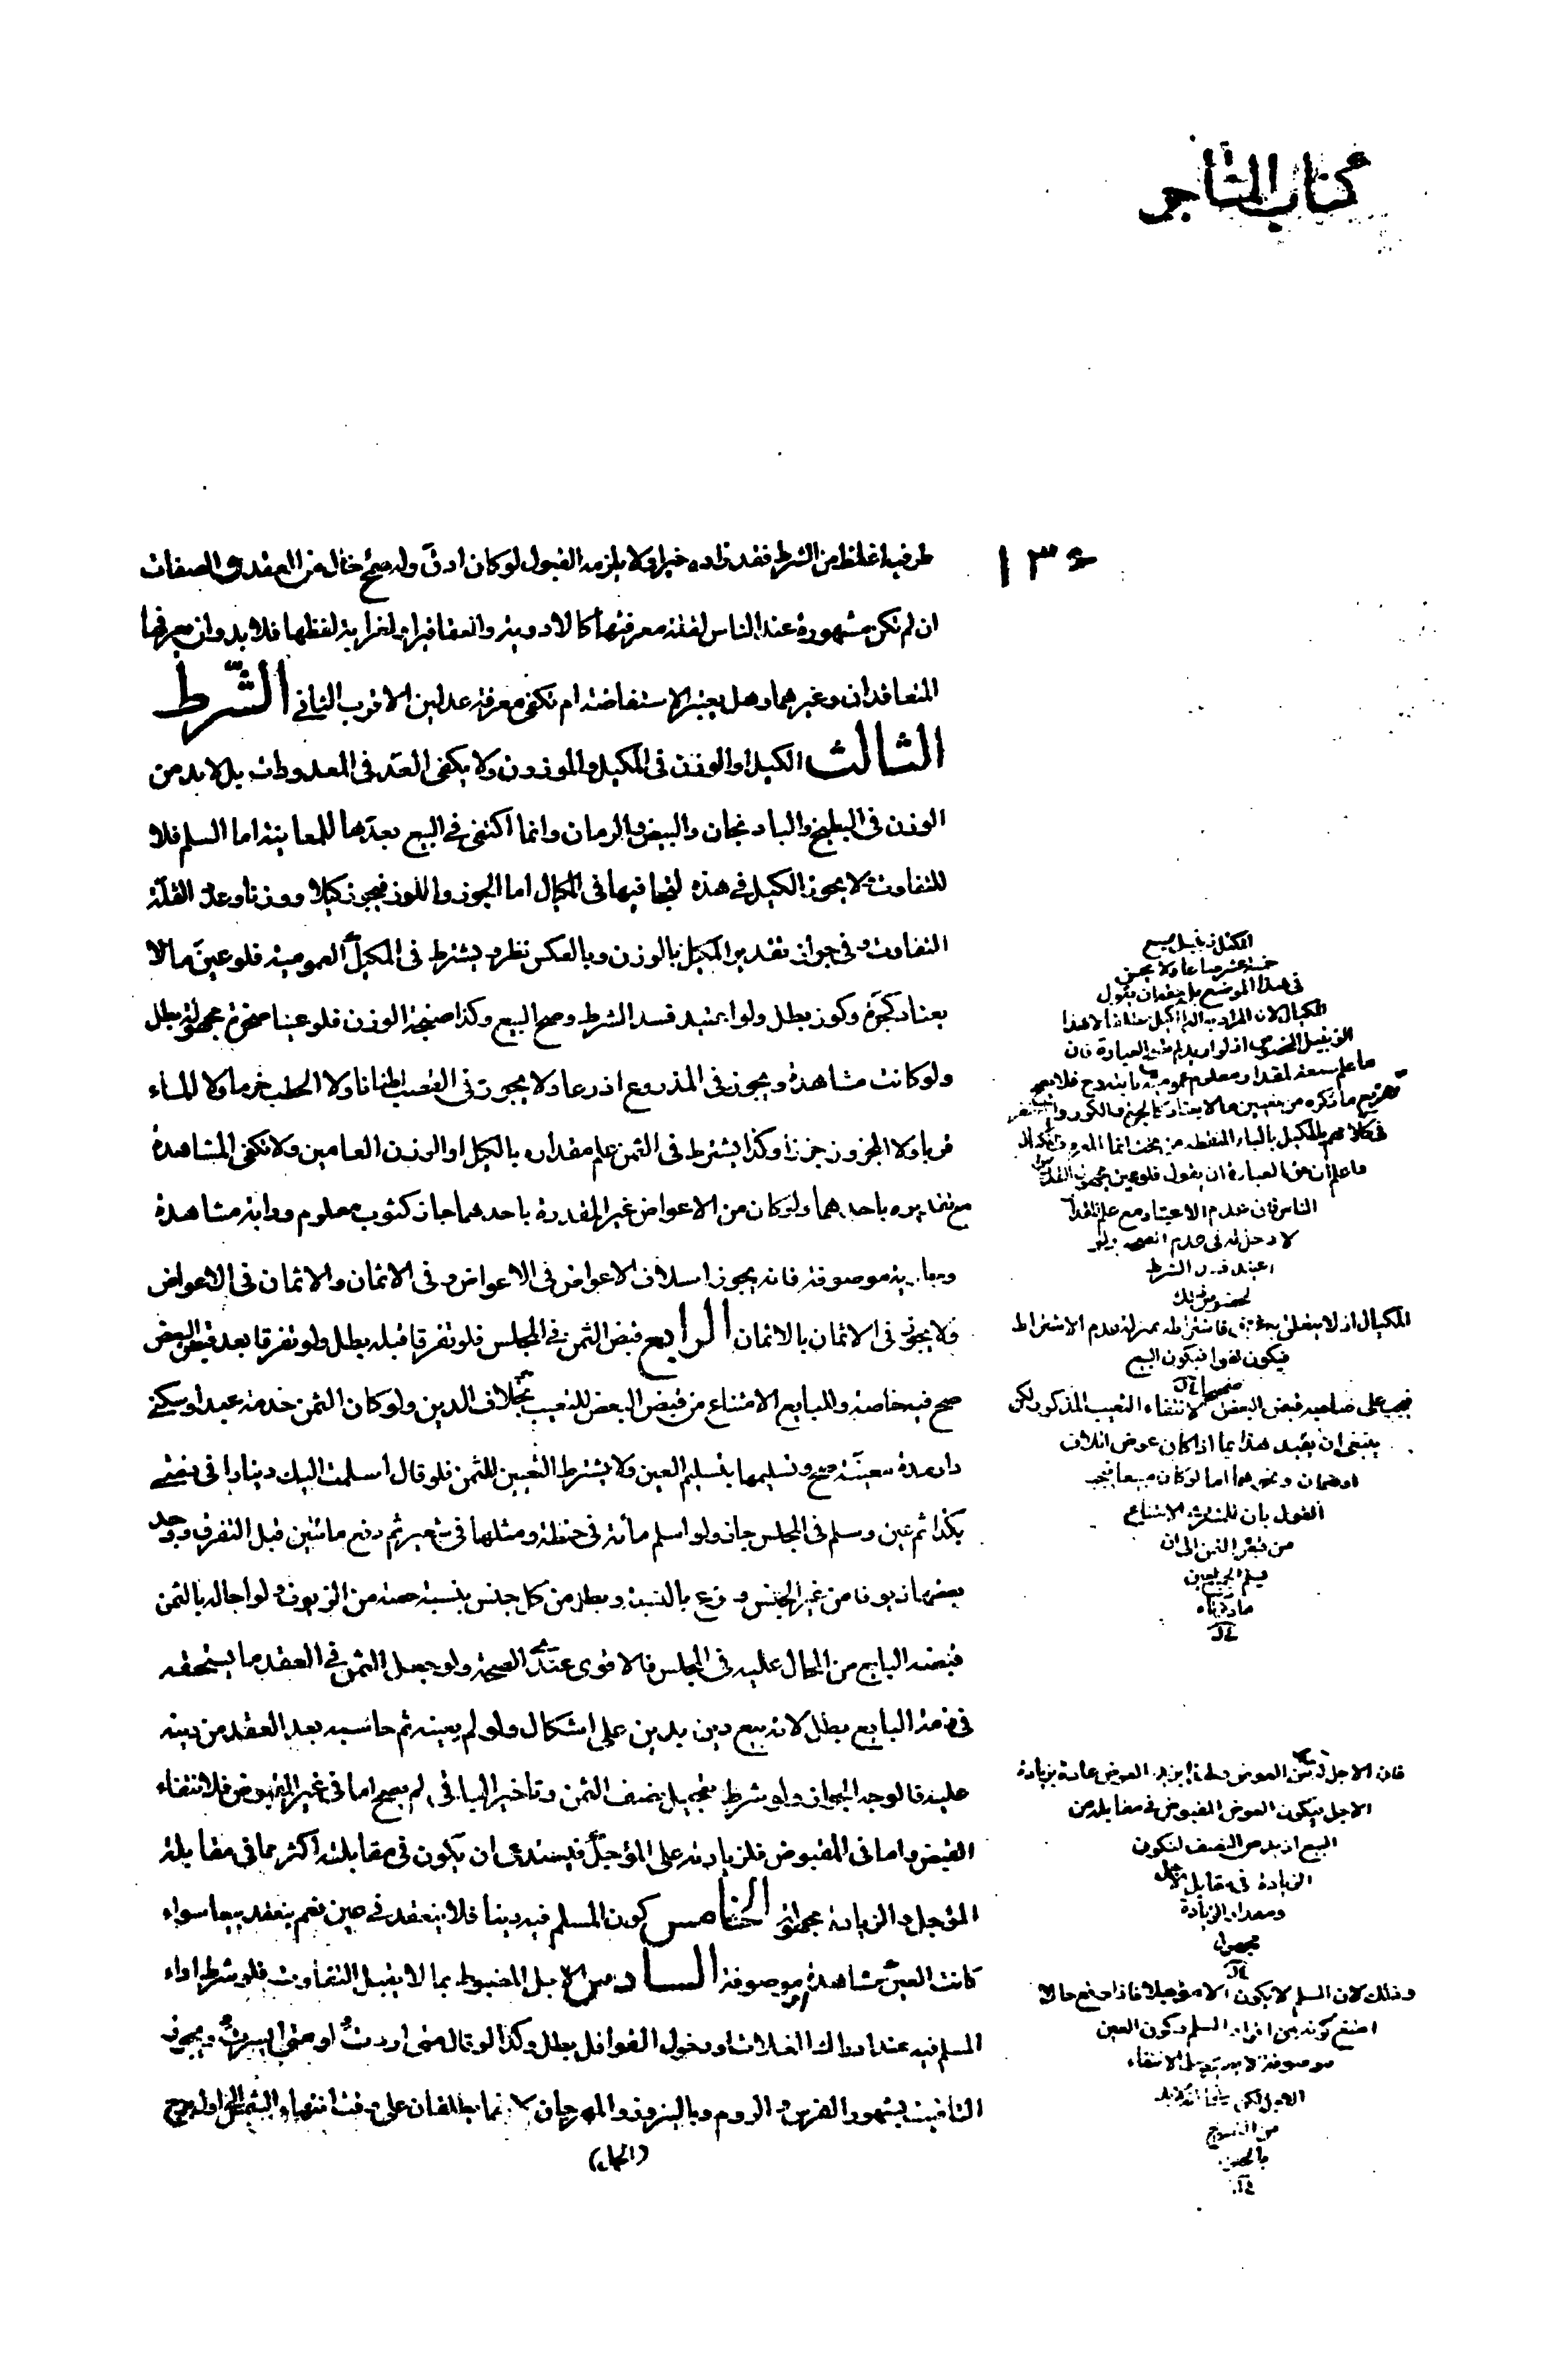 كتاب المتاجر
١٣٤
طرفيه اغلظ من الشرط فقد زاده خيرا ولا يلزمه القبول لو كان ادقّ وله صمغ خال من العقد والصفات
ان لم تكن مشهورة عند الناس لقلة معرفتها كالادوية والعقاقير او لغرابة لفظها فلا بد وان يعرفها
المتعاقدان وغيرهما وهل يعتبر الاستفاضة ام تكفي معرفة عدلين الاقرب الثاني الشّرط
الثالث الكيل او الوزن في المكيل والموزون ولا يكفي العدّ في المعدودات بل لا بد من
الوزن في البطيخ والباد نجان والبيض والرمان وانما اكتفى في البيع بعدّها للمعاينة اما السلم فلا
للتفاوت ولا يجوز الكيل في هذه لتجافيها في المكيال اما الجوز واللوز فيجوز كيلا ووزنا وعدّا لقلّة
التفاوت وفي جواز تقدير المكيل بالوزن وبالعكس نظر ويشترط في المكيال العمومية فلو عيّن ما لا
يعتاد كجرّة وكوز بطل ولو ا يعتيد فسد الشرط وصح البيع وكذا صنجة الوزن فلو عينا صخرة مجهولة بطل
ولو كانت مشاهدة ويجوز في المذروع اذرعا ولا يجوز في القصب اطنانا ولا الحطب حزما ولا الماء
قربا ولا المجزوز جززا وكذا يشترط في الثمن علم مقداره بالكيل او الوزن العامين ولا تكفي المشاهدة
مع تقديره باحدهما ولو كان من الاعواض غير المقدرة باحدهما جاز كثوب معلوم ودابة مشاهدة
وجارية موصوفة فانه يجوز اسلاف الاعواض في الاعواض وفي الاثمان والاثمان في الاعواض
ولا يجوز في الاثمان بالاثمان الرابع قبض الثمن في المجلس فلو تفرقا قبله بطل ولو تفرقا بعد قبض البعض
صح فيه خاصة وللبايع الامتناع من قبض البعض للتعيب بخلاف الدين ولو كان الثمن خدمة عبد او سكنى
دار مدة معينّة صح وتسليمها بتسليم العين ولا يشترط التعيين للثمن فلو قال اسلمت اليك دينارا في ذمتي
بكذا ثم عين وسلم في المجلس جاز ولو اسلم مائة في حنطة ومثلها في شعير ثم دفع مائتين قبل التفرق ووجد
بعضها زيوفا من غير الجنس وزع بالنسبة وبطل من كل جنس بنسبة حصته من الزيوف ولو احاله بالثمن
فقبضه البايع من المحال عليه في المجلس فالاقوى عندي الصحة ولو جعل الثمن في العقد ما يستحقه
في ذمة البايع بطل لانه بيع دين بدين على اشكال ولو لم يعينه ثم حاسبه بعد العقد من دينه
عليه فالوجه الجواز ولو شرط تعجيل نصف الثمن وتاخير الباقي لم يصح اما في غير المقبوض فلانتفاء
القبض واما في المقبوض فلزيادته على المؤجل فيستدعى ان يكون في مقابلته اكثر مما في مقابلة
المؤجل والزيادة مجهولة الخامس كون المسلم فيه دينا فلا ينعقد في عين نعم ينعقد بيعا سواء
كانت العين مشاهدة او موصوفة السادس الاجل المضبوط بما لا يقبل التفاوت فلو شرط اداء
المسلم فيه عند ادراك الغلات او دخول القوافل بطل وكذا لو قال متى اردت او متى ايسرت ويجوز
التاقيت بشهور الفرس والروم وبالنيروز والمهرجان لانهما يطلقان على وقت انتهاء الشمس الى اول برج
(الحمل)
المكتل زنبيل يسع
خمسة عشر صاعا ولا يحسن
في هذا الموضع بل حقه ان يقول
المكيال لان المراد به الة الكيل مطلقا لا هذا
الزنبيل المخصوص اذ لو اريد لم تف العبارة فان
ما علم سعة لمقداره معلوم عمومية
تفريع ما ذكره من تعيين ما لا يعتاد كالجرة والكوز
الناس فان عدم الاعتياد مع علم القدر
لا دخل له في عدم الصحة ولو
اعتيد فسد الشرط
المكيال اذ لا يتعلق به غرض فاشتراطه بمنزلة عدم الاشتراط
فيكون لغوا فيكون البيع
صحيحا
فيجب على صاحبه قبض البعض لانتفاء التعيب المذكور لكن
ينبغي ان يقيد هذا بما اذا كان عوض اتلاف
او ضمان ونحوهما اما لو كان مبيعا فيجب
القول بان للمشتري الامتناع
من قبض الثمن الى ان
فان الاجل له قسط من العوض عادة بزيادة
الاجل فيكون العوض المقبوض في مقابله من
البيع ازيد من النصف لتكون
الزيادة في مقابل الاجل
ومقدار الزيادة
مجهول
وذلك لان السلم لا يكون الا مؤجلا فاذا وقع حالا
امتنع كونه من افراد السلم وكون العين